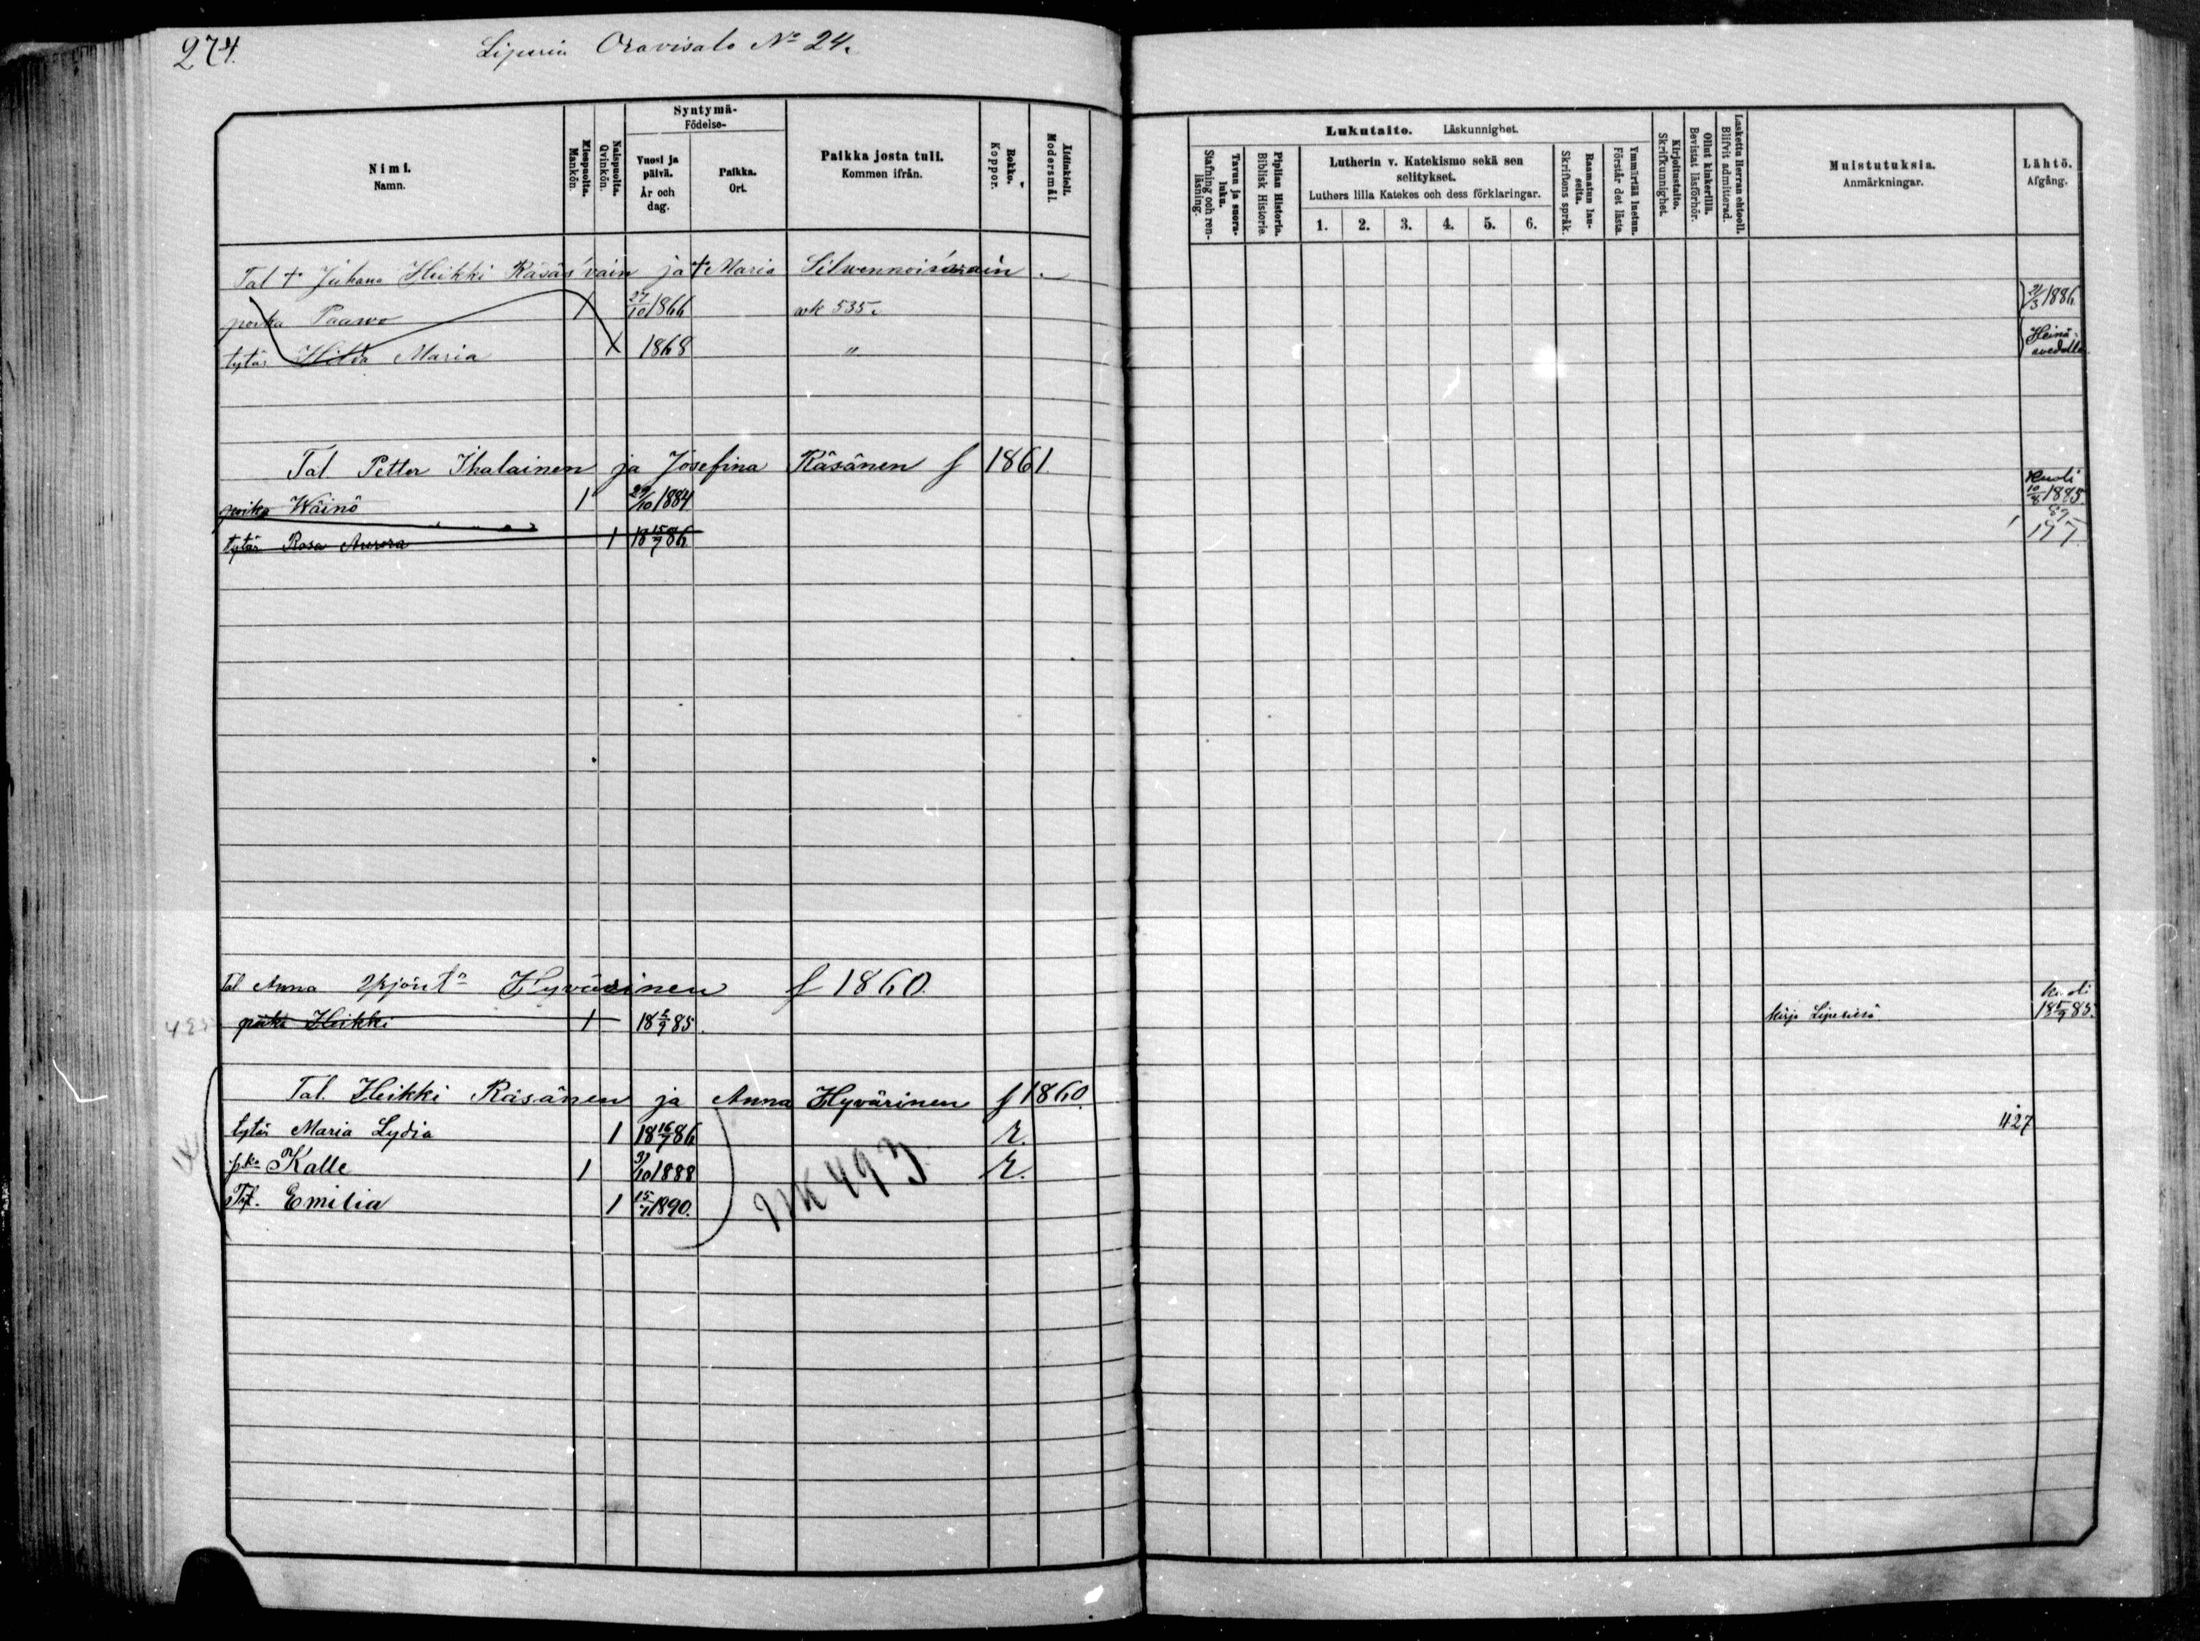 274.
Liperin Oravisalo No 24.
Nimi.
Namn.
Miespuolta.
Mankön.
Naispuolta.
Qvinkön.
Syntymä-
Födelse-
Vuosi ja päivä.
År och dag.
Paikka.
Ort.
Paikka josta tuli.
Kommen ifrån.
Rokko.
Koppor.
Äidinkieli.
Modersmål.
Lukutaito. Läskunnighet.
Tavun ja suora-luku.
Stafning och ren-läsning.
Piplian Historia.
Biblisk Historie.
Lutherin v. Katekismo sekä sen selitykset.
Luthers lilla Katekes och dess förklaringar.
1. 2. 3. 4. 5. 6.
Raamatun lauseita.
Skriftens språk.
Ymmärtää luetun.
Förstår det lästa.
Kirjoitustaito.
Skrifkunnighet.
Ollut kinkerillä.
Bevistat läsförhör.
Laskettu Herran ehtooll.
Blifvit admitterad.
Muistutuksia.
Anmärkningar.
Lähtö.
Afgång.
Tal † Juhana Heikki Räsäs'vain ja † Maria
poika Paavo 1 27/10 1866 wk 535. 21/3 1886
tytär Hilda Maria 1 1868 " Heinä-
Tal. Petter Ihalainen ja Josefina Räsänen f 1861
poika Wäinö 1 29/10 1884 Kuoli 10/8 1885
tytär Rosa Aurora 1 18 15/7 86 197
Tal Anna Yrjönt. Hyvärinen f 1860.
poika Heikki 1 18 5/9 85. Kuoli 18 5/9 85.
Tal. Heikki Räsänen ja Anna Hyvärinen f 1860
tytär Maria Lydia 1 18 16/7 86 r. 427
pka Kalle 1 31/10 1888 r.
Emilia 1 15/7 1890. NK 493